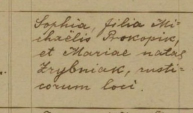 Sophia, filia Mi-
chaëlis Prokopik,
et Mariae natae
Hrybniak, rusti-
corum loci.